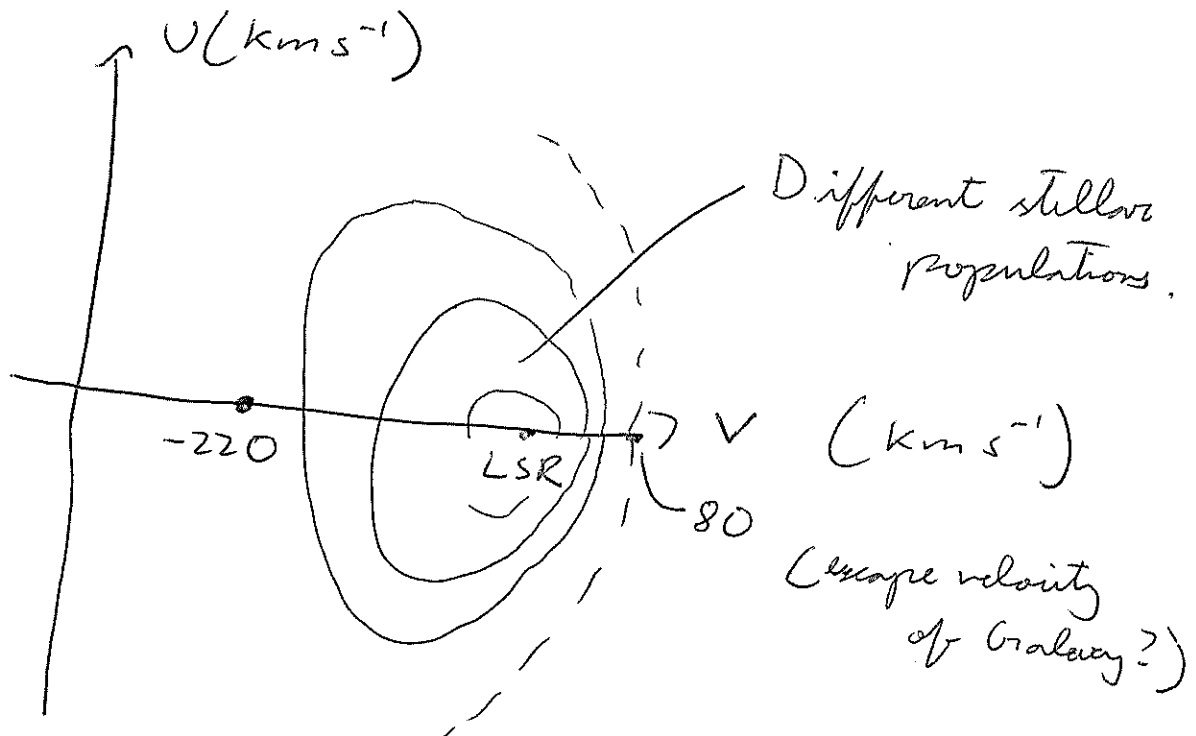 U(km s⁻¹)
Different stellar
populations.
-220
LSR
V (km s⁻¹)
80
(escape velocity
of Galaxy?)